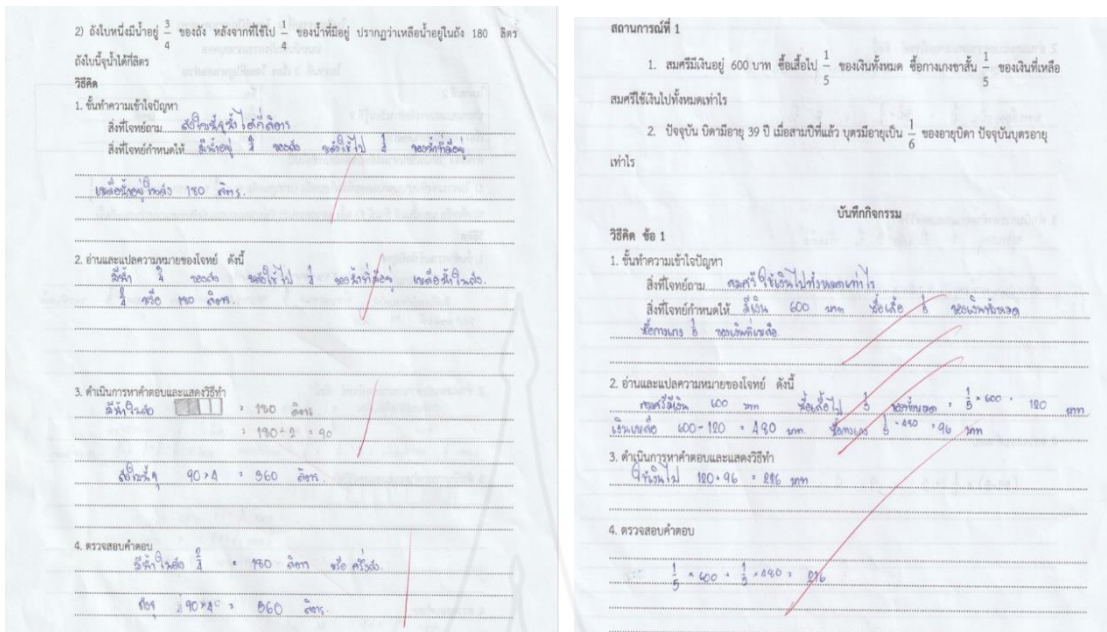 2) ถังใบหนึ่งมีน้ำอยู่ 3/4 ของถัง หลังจากที่ใช้ไป 1/4 ของน้ำที่มีอยู่ ปรากฏว่าเหลือน้ำอยู่ในถัง 180 ลิตร
ถังใบนี้จุน้ำได้กี่ลิตร
วิธีคิด
1. ขั้นทำความเข้าใจปัญหา
สิ่งที่โจทย์ถาม ถังใบนี้จุน้ำได้กี่ลิตร
สิ่งที่โจทย์กำหนดให้ มีน้ำอยู่ ของถัง หลังใช้ไป ของน้ำที่มีอยู่
เหลือน้ำอยู่ในถัง 180 ลิตร.
2. อ่านและแปลความหมายของโจทย์ ดังนี้
มีน้ำ ของถัง หลังใช้ไป ของน้ำที่มีอยู่ เหลือน้ำในถัง.
หรือ 180 ลิตร.
3. ดำเนินการหาคำตอบและแสดงวิธีทำ
มีน้ำในถัง = 180 ลิตร
= 180÷2 = 90
ถังใบนี้จุ 90×4 = 360 ลิตร.
4. ตรวจสอบคำตอบ
มีน้ำในถัง 2/4 = 180 ลิตร หรือ ครึ่งถัง.
90×4 = 360 ลิตร.
สถานการณ์ที่ 1
1. สมศรีมีเงินอยู่ 600 บาท ซื้อเสื้อไป 1/5 ของเงินทั้งหมด ซื้อกางเกงขาสั้น 1/5 ของเงินที่เหลือ
สมศรีใช้เงินไปทั้งหมดเท่าไร
2. ปัจจุบัน บิดามีอายุ 39 ปี เมื่อสามปีที่แล้ว บุตรมีอายุเป็น 1/6 ของอายุบิดา ปัจจุบันบุตรอายุ
เท่าไร
บันทึกกิจกรรม
วิธีคิด ข้อ 1
1. ขั้นทำความเข้าใจปัญหา
สิ่งที่โจทย์ถาม สมศรีใช้เงินไปทั้งหมดเท่าไร
สิ่งที่โจทย์กำหนดให้ มีเงิน 600 บาท ซื้อเสื้อ ของเงินทั้งหมด
ซื้อกางเกง ของเงินที่เหลือ
2. อ่านและแปลความหมายของโจทย์ ดังนี้
สมศรีมีเงิน 600 บาท ซื้อเสื้อไป ของทั้งหมด = 1/5 × 600 = 120 บาท
เงินเหลือ 600-120 = 480 บาท ซื้อกางเกง × 480 = 96 บาท
3. ดำเนินการหาคำตอบและแสดงวิธีทำ
ใช้เงินไป 120+96 = 216 บาท
4. ตรวจสอบคำตอบ
1/5 × 600 + 1/5 × 480 = 216